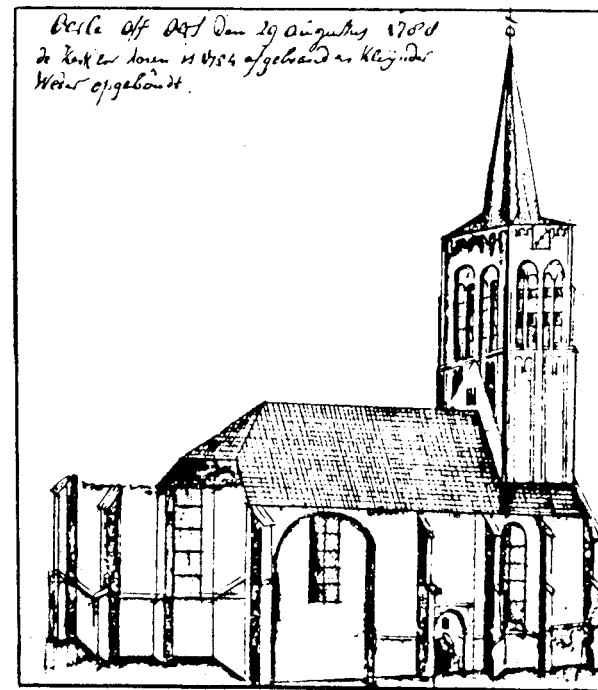 Oerle off Oers Den 29 augustus 1788
de Kerk en toren is 1754 afgebrand en Kleijnder
Weder opgeboudt.